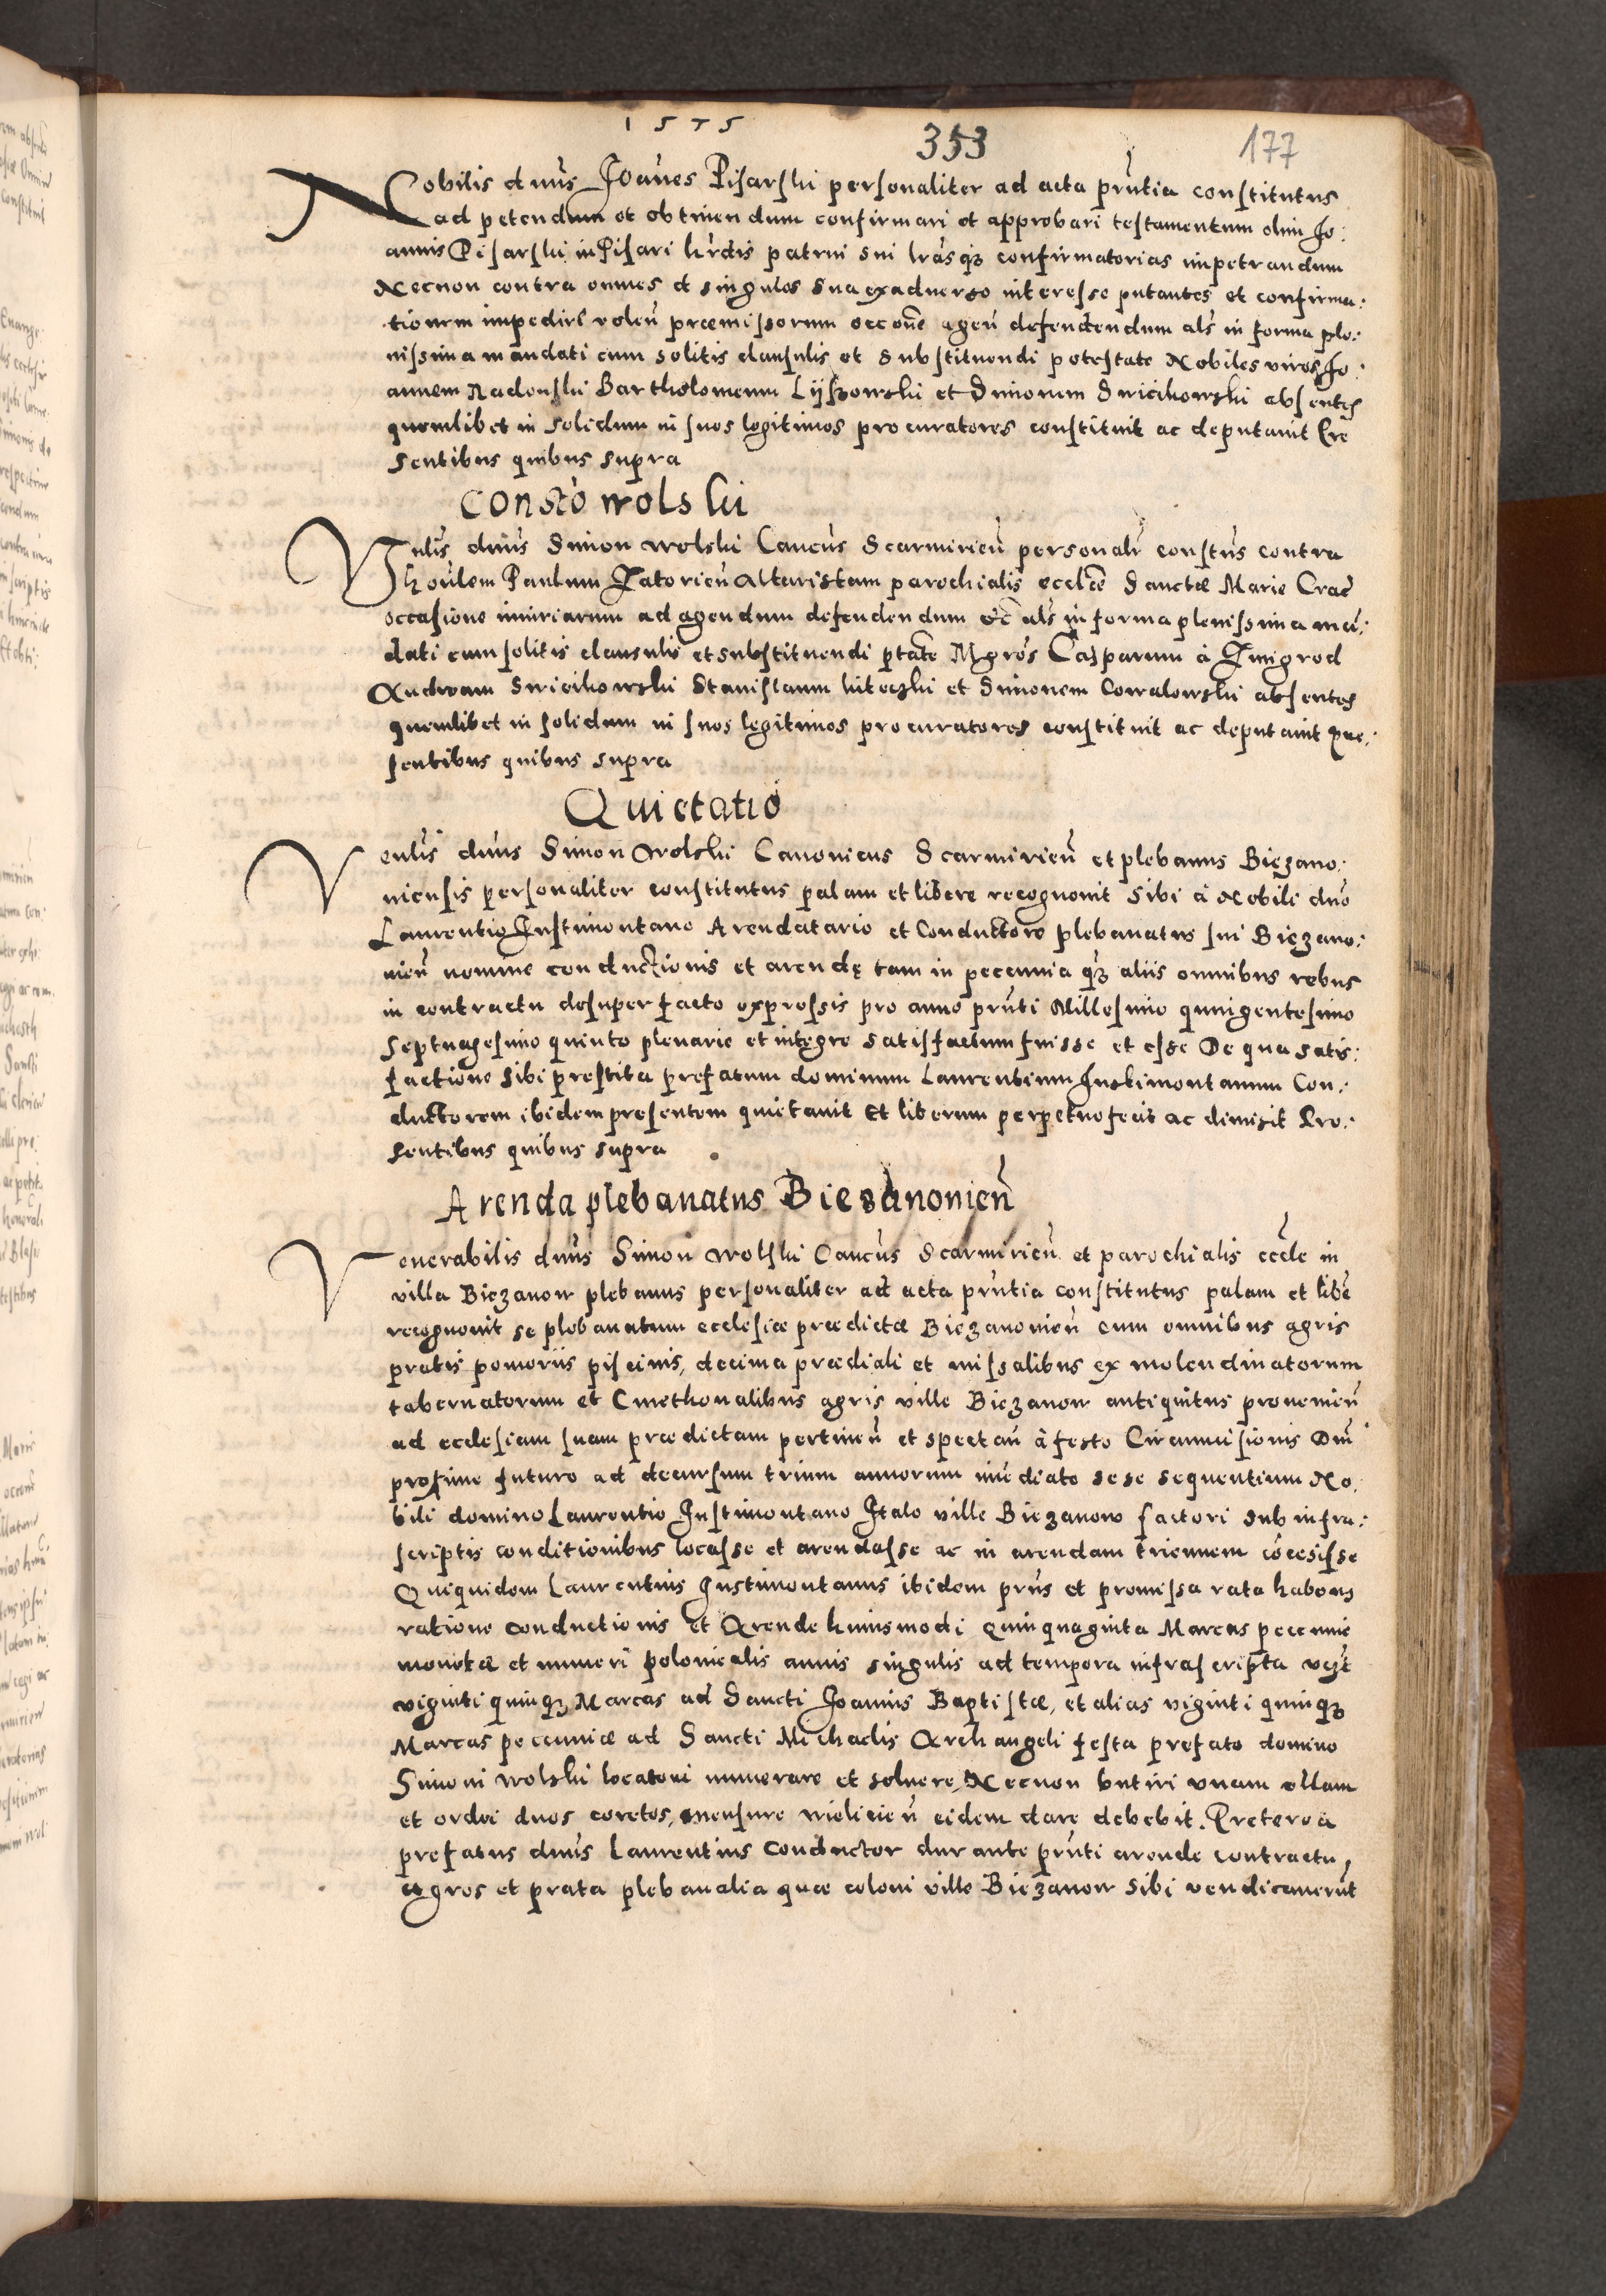 1575
353
177
Nobilis dnus Joannes Pisarski personaliter ad acta prntia constitutus
ad petendum et obtinendum confirmari et approbari testamentum olim Jo:
annis Pisarski in Pisari hrdis patrui sui lrasqz confirmatorias impetrandum
Necnon contra omnes et singulos sua exaduerso interesse putantes et confirma:
tionem impedire volen præmissorum occone agen defendendum als in forma ple:
nissima mandati cum solitis clausulis et substituendi potestate Nobiles viros Jo:
annem Radonski Bartholomeum Lyssowski et Simonem Swicikowski absentes
quemlibet in solidum in suos legitimos procuratores constituit ac deputauit Pre
sentibus quibus supra
Consto wolski
Vnlis dnus Simon wolski Cancus Scarmirien personalr constus contra
honlem Paulum Zatorien Altaristam parochialis ecclce Sanctæ Marie Crac
occasione iniuriarum ad agendum defendendum etc als in forma plenissima man:
dati cum solitis clausulis et substituendi ptate Mgros Casparum à Zmigrod
Andream Swicikowski Stanislaum kitecski et Simonem Cowalowski absentes
quemlibet in solidum in suos legitimos procuratores constituit ac deputauit Præ:
sentibus quibus supra
Quietatio
Venlis dnus Simon Wolski Canonicus Scarmirien et plebanus Biezano:
niensis personaliter constitutus palam et libere recognouit sibi à Nobili dno
Laurentio Justimontano Arendatario et Conductore plebanatus sui Biezano:
nien nomine conductionis et arendę tam in pecunnia qz aliis omnibus rebus
in contractu desuper facto expressis pro anno prnti Millesimo quingentesimo
septuagesimo quinto plenarie et integre satisfactum fuisse et esse De qua satis:
factione sibi prestita prefatum dominum Laurentium Justimontanum Con:
ductorem ibidem presentem quietauit et liberum perpetuo fecit ac dimisit Pre:
sentibus quibus supra
Arenda plebanatus Biesanonien
Venerabilis dnus Simon wolski Cancus Scarmirien et parochialis eccle in
villa Biezanow plebanus personaliter ad acta prntia constitutus palam et libe
recognouit se plebanatum ecclesiæ prædictæ Biezanonien cum omnibus agris
pratis pomoriis piscinis, decima prædiali et missalibus ex molendinatorum
tabernatorum et Cmethonalibus agris ville Biezanow antiquitus prouenien
ad ecclesiam suam prædictam pertinen et spectan à festo Circumcisionis Dni
proxime futuro ad decursum trium annorum imediate sese sequentium No:
bili domino Laurentio Justimontano Italo ville Biezanow factori sub infra:
scriptis conditionibus locasse et arendasse ac in arendam triennem cocesisse
Quiquidem Laurentius Justimontanus ibidem prns et premissa rata habens
ratione conductionis et Arende huiusmodi quinquaginta Marcas pecunnie
monetæ et numeri polonicalis annis singulis ad tempora infrascripta vczt
viginti quinqz Marcas ad Sancti Joannis Baptistæ, et alias viginti quinqz
Marcas pecunniæ ad Sancti Michaelis Archangeli festa prefato domino
Simoni wolski locatori numerare et soluere, Necnon butiri vnam ollam
et ordei duos coretos, mensure wielicien eidem dare debebit. Preterea
prefatus dnus Laurentius Conductor durante prnti arende contractu,
agros et prata plebanalia quæ coloni ville Biezanow sibi vendicauerunt